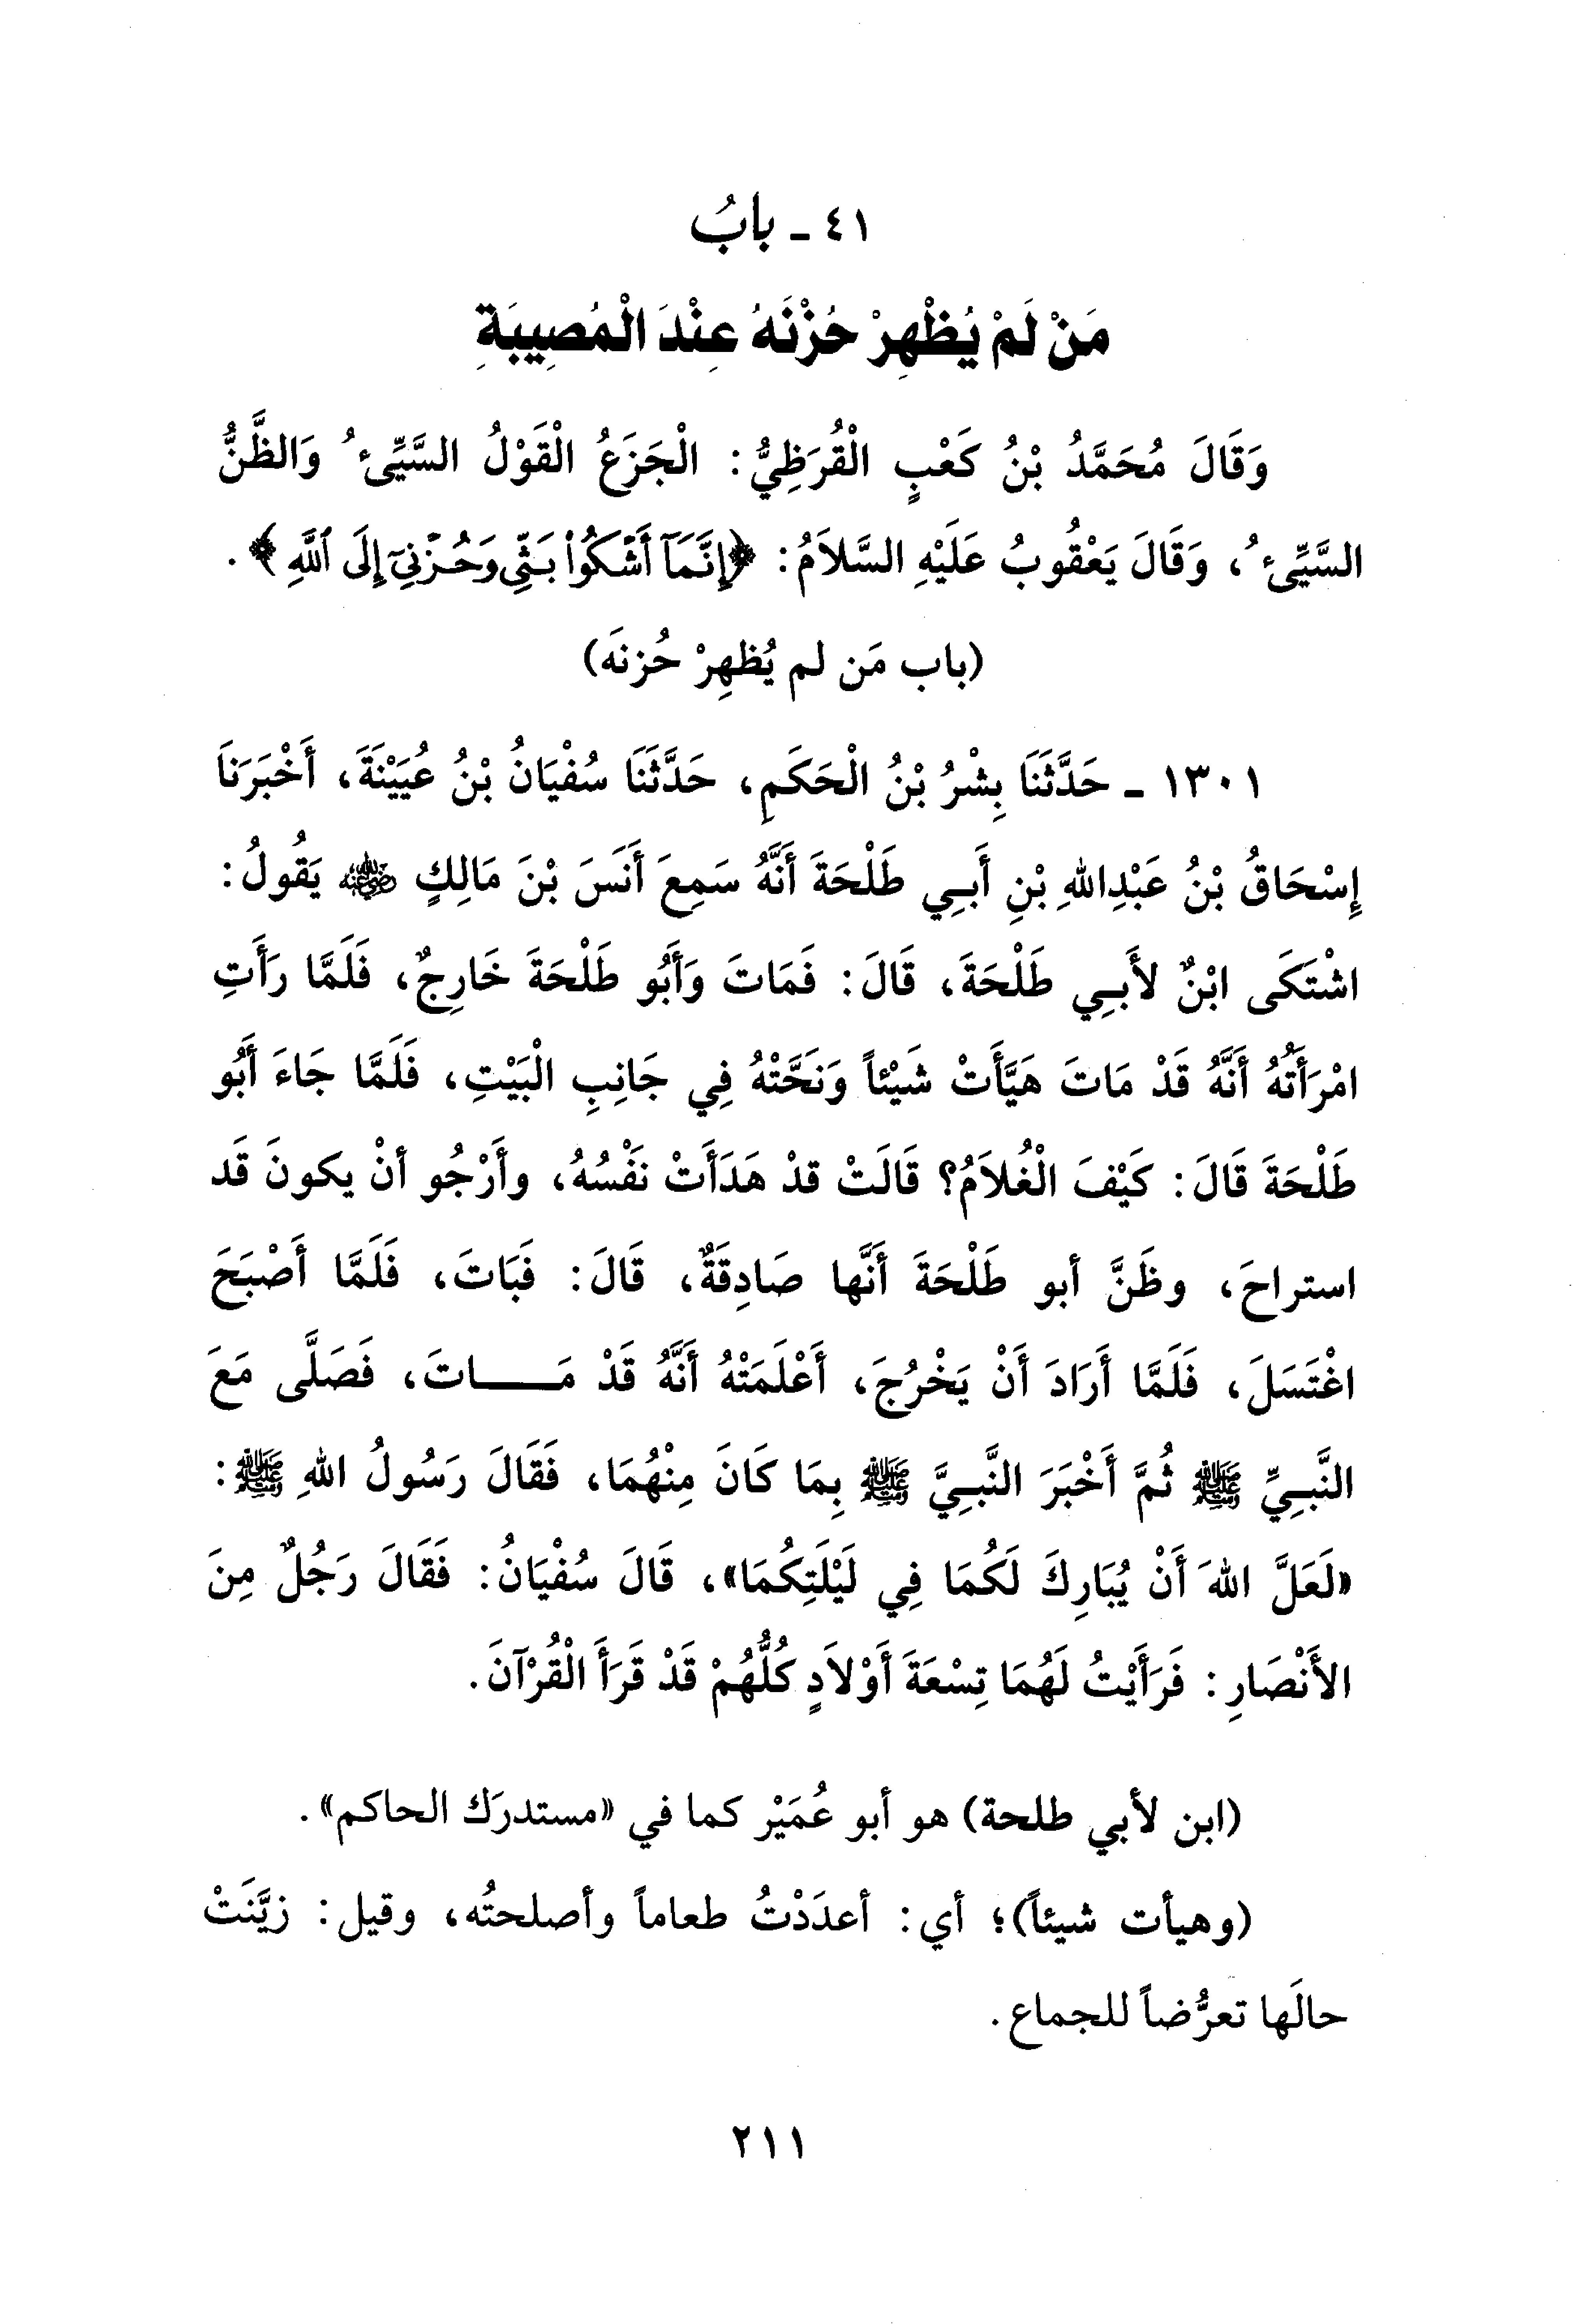 ٤١ - بابُ
مَنْ لَمْ يُظْهِرْ حُزْنَهُ عِنْدَ الْمُصِيبَةِ
وَقَالَ مُحَمَّدُ بْنُ كَعْبٍ الْقُرَظِيُّ: الْجَزَعُ الْقَوْلُ السَّيِّىءُ وَالظَّنُّ
السَّيِّىءُ، وَقَالَ يَعْقُوبُ عَلَيْهِ السَّلاَمُ: ﴿إِنَّمَآ أَشْكُوا۟ بَثِّى وَحُزْنِىٓ إِلَى ٱللَّهِ﴾.
(باب مَن لم يُظهِرْ حُزنَه)
١٣٠١ - حَدَّثَنَا بِشْرُ بْنُ الْحَكَمِ، حَدَّثَنَا سُفْيَانُ بْنُ عُيَيْنَةَ، أَخْبَرَنَا
إِسْحَاقُ بْنُ عَبْدِاللهِ بْنِ أَبِي طَلْحَةَ أَنَّهُ سَمِعَ أَنَسَ بْنَ مَالِكٍ رضي الله عنه يَقُولُ:
اشْتَكَى ابْنٌ لأَبِي طَلْحَةَ، قَالَ: فَمَاتَ وَأَبُو طَلْحَةَ خَارِجٌ، فَلَمَّا رَأَتِ
امْرَأَتُهُ أَنَّهُ قَدْ مَاتَ هَيَّأَتْ شَيْئاً وَنَحَّتْهُ فِي جَانِبِ الْبَيْتِ، فَلَمَّا جَاءَ أَبُو
طَلْحَةَ قَالَ: كَيْفَ الْغُلاَمُ؟ قَالَتْ قدْ هَدَأَتْ نَفْسُهُ، وأَرْجُو أنْ يكونَ قَد
استراحَ، وظَنَّ أبو طَلْحَةَ أَنَّها صَادِقَةٌ، قَالَ: فَبَاتَ، فَلَمَّا أَصْبَحَ
اغْتَسَلَ، فَلَمَّا أَرَادَ أَنْ يَخْرُجَ، أَعْلَمَتْهُ أَنَّهُ قَدْ مَـــاتَ، فَصَلَّى مَعَ
النَّبِيِّ ﷺ ثُمَّ أَخْبَرَ النَّبِيَّ ﷺ بِمَا كَانَ مِنْهُمَا، فَقَالَ رَسُولُ اللهِ ﷺ:
«لَعَلَّ اللهَ أَنْ يُبَارِكَ لَكُمَا فِي لَيْلَتِكُمَا»، قَالَ سُفْيَانُ: فَقَالَ رَجُلٌ مِنَ
الأَنْصَارِ: فَرَأَيْتُ لَهُمَا تِسْعَةَ أَوْلاَدٍ كُلُّهُمْ قَدْ قَرَأَ الْقُرْآنَ.
(ابن لأبي طلحة) هو أبو عُمَيْر كما في «مستدرَك الحاكم».
(وهيأت شيئاً)؛ أي: أعدَدْتُ طعاماً وأصلحتُه، وقيل: زيَّنَتْ
حالَها تعرُّضاً للجماع.
٢١١